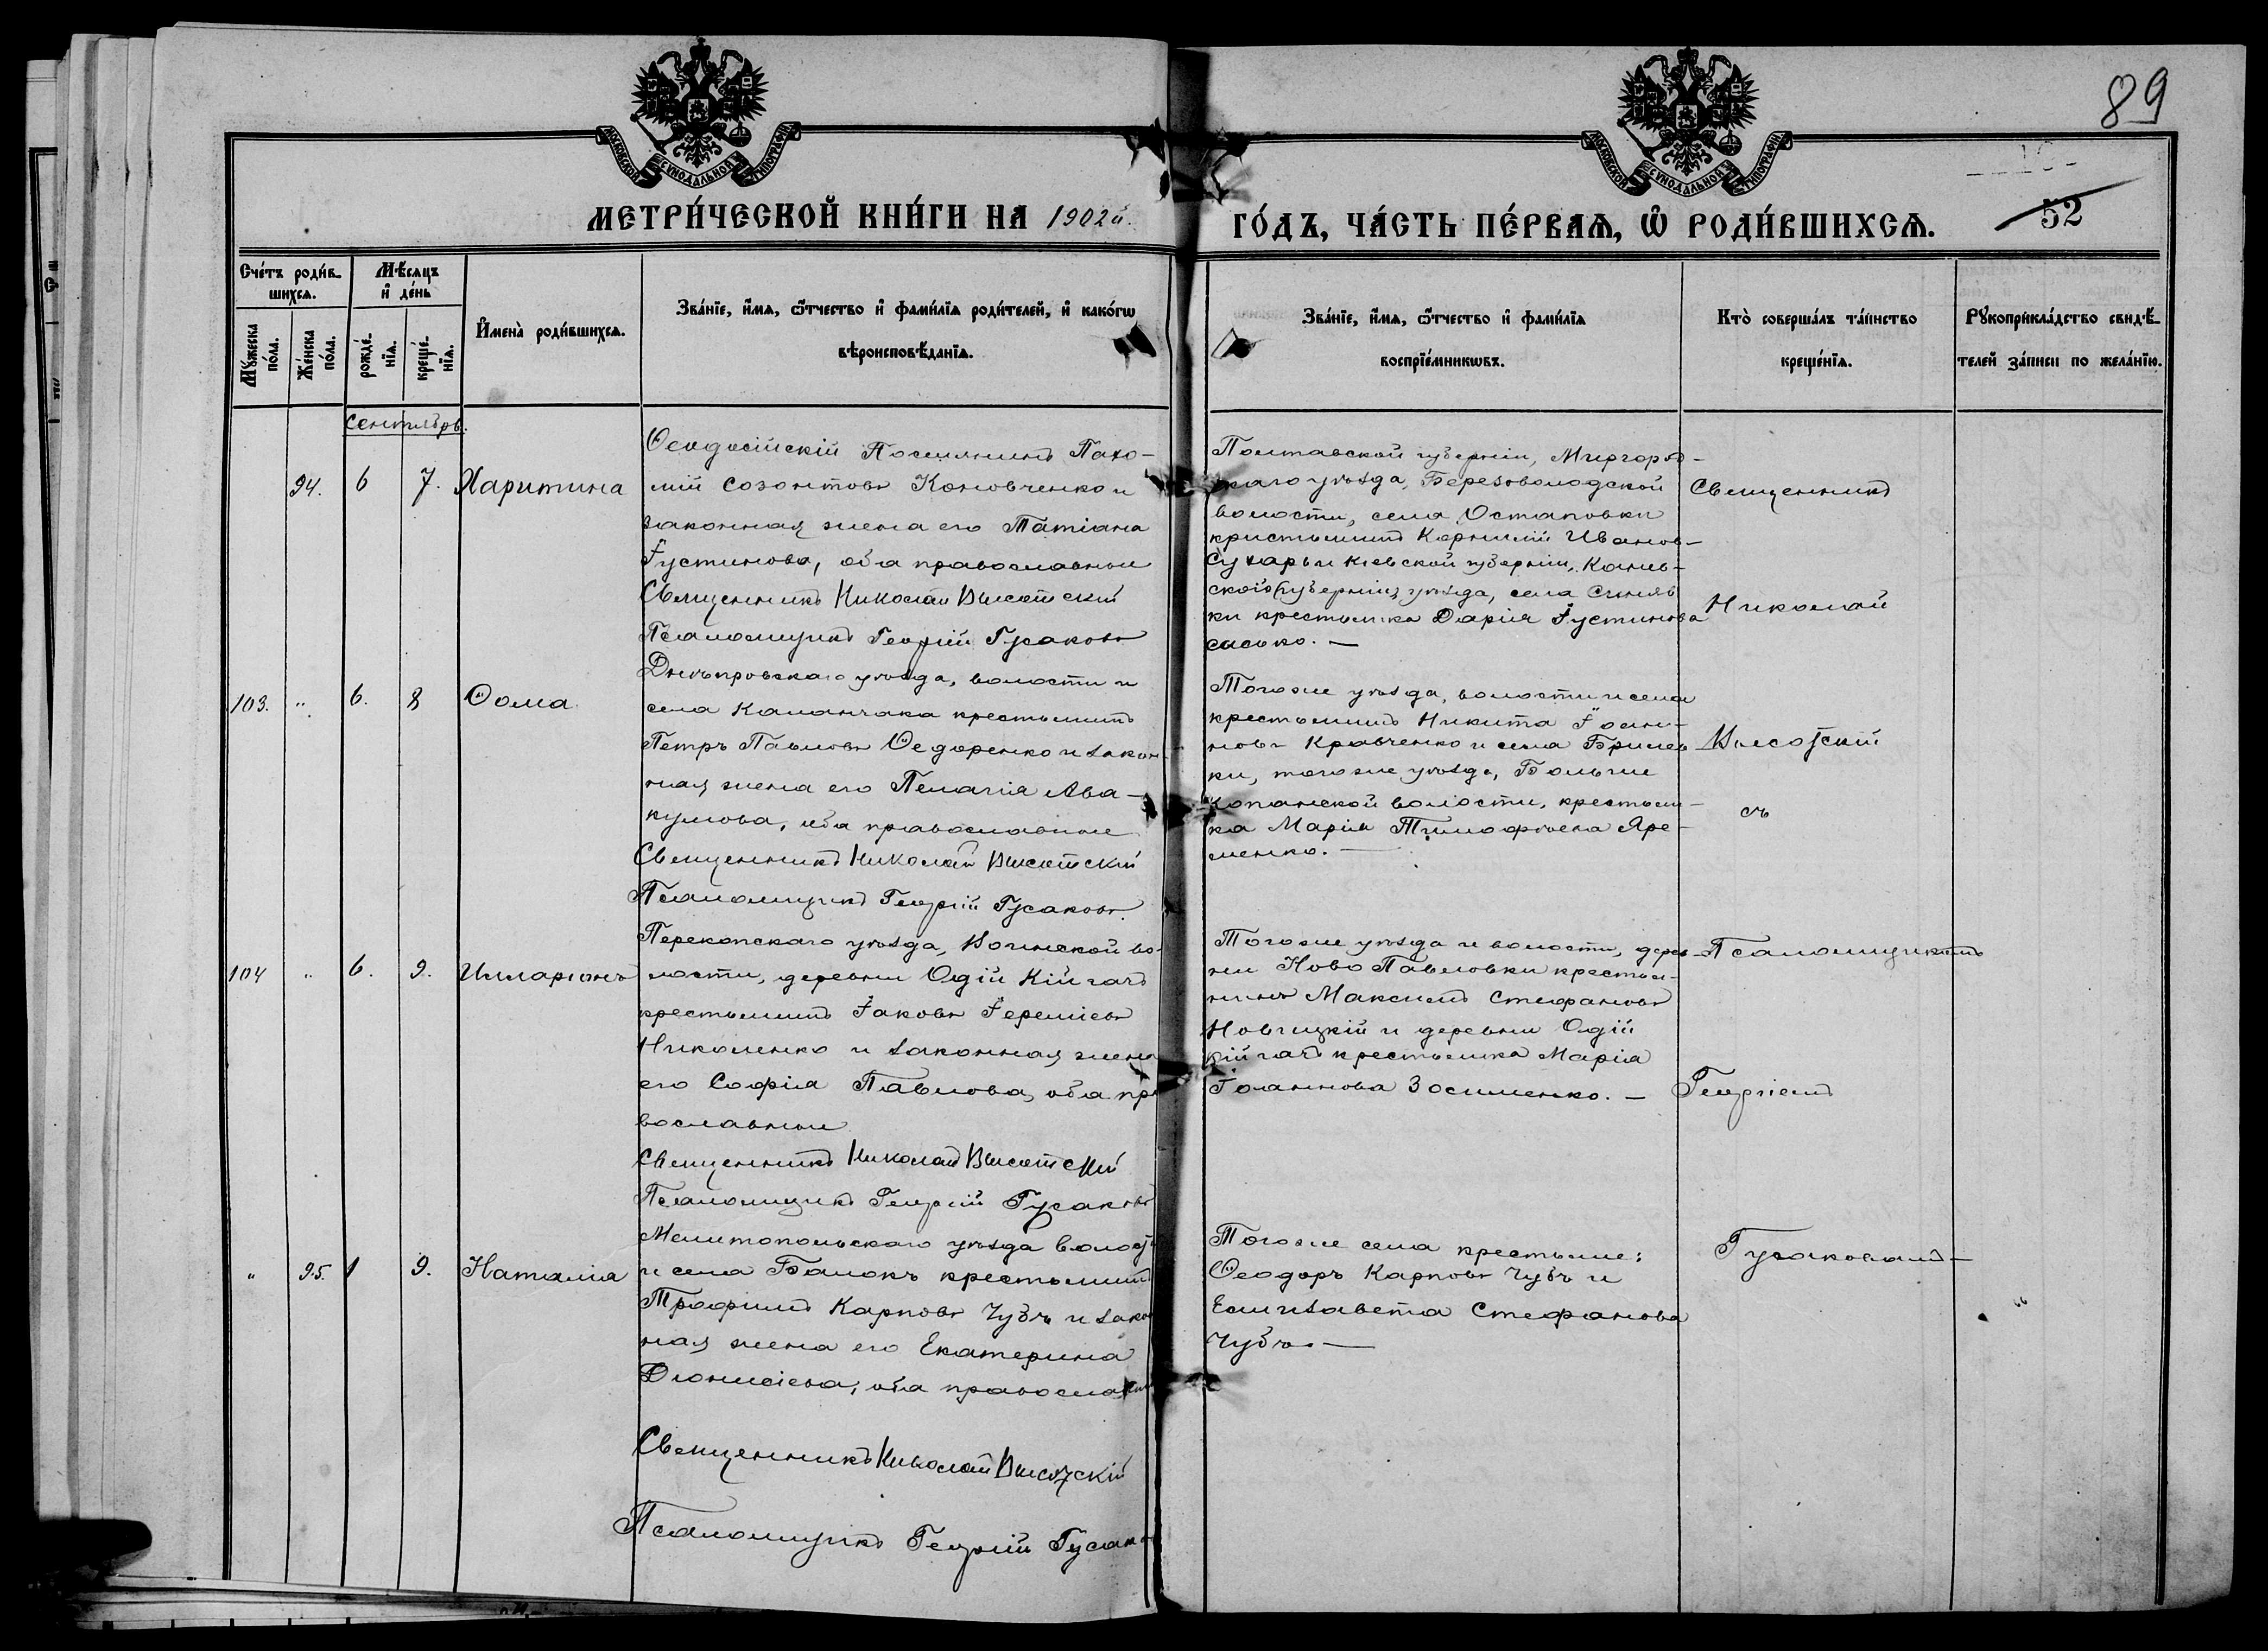 89
52
МОСКОВСКОЙ СѴНОДАЛЬНОЙ ТИПОГРАФІИ
МОСКОВСКОЙ СѴНОДАЛЬНОЙ ТИПОГРАФІИ
МЕТРИ́ЧЕСКОЙ КНИ́ГИ НА 1902й.
ГО́ДЪ, ЧА́СТЬ ПЕ́РВАѦ, Ѡ҆ РОДИ́ВШИХСѦ.
Сче́тъ роди́в-
шихсѧ.
Мꙋ́жеска по́ла.
Же́нска по́ла.
Мѣ́сѧцъ
и҆ де́нь
рожде́-
нїѧ.
креще́-
нїѧ.
И҆мена̀ роди́вшихсѧ.
Зва́нїе, и҆́мѧ, ѻ҆́тчество и҆ фами́лїѧ роди́телей, и҆ како́гѡ
вѣроисповѣ́данїѧ.
Зва́нїе, и҆́мѧ, ѻ҆́тчество и҆ фами́лїѧ
воспрїе́мникѡвъ.
Кто̀ соверша́лъ та́инство
креще́нїѧ.
Рꙋкоприкла́дство свидѣ́-
телей за́писи по жела́нїю.
Сентябрь.
94. 6 7. Харитина
Ѳеодосійскій Поселянинъ Пахо-
мій Созонтовъ Коновченко и
законная жена его Татіана
Іустинова, оба православные
Священникъ Николай Высотскій
Псаломщикъ Георгій Гусаковъ
Полтавской губерніи, Миргород-
скаго уѣзда, Березоволодской
волости, села Остаповки
крестьянинъ Корнилій Иванов-
Сухарь и Кіевской губерніи, Канев-
ской (губерніи) уѣзда, села Синяв
ки крестьянка Дарія Іустинова
сасько. —
Священникъ
Николай
103. " 6. 8 Ѳома
Днѣпровскаго уѣзда, волости и
села Каланчака крестьянинъ
Петръ Павловъ Ѳедоренко и закон-
ная жена его Пелагія Ава-
кумова, оба православные
Священникъ Николай Высотскій
Псаломщикъ Георгій Гусаковъ.
Тогоже уѣзда, волости и села
крестьянинъ Никита Іоан-
новъ Кравченко и села Брилев
ки, тогоже уѣзда, Больше
Копанской волости, крестьян-
ка Марія Тимофѣева Яре-
менко. —
Высотскій
съ
104 " 6. 9. Илларіонъ
Перекопскаго уѣзда, Воинской во-
лости, деревни Одій Кійгачъ
крестьянинъ Іаковъ Іереміевъ
Николенко и законная жена
его Софія Павлова, оба пра
вославные
Священникъ Николай Высотскій
Псаломщикъ Георгій Гусаковъ
Тогоже уѣзда и волости, дерев-
ни Ново Павловки крестья-
нинъ Максимъ Стефановъ
Новицкій и деревни Одій
Кійгачъ крестьянка Марія
Іоаннова Зосименко. —
Псаломщикомъ
Георгіемъ
" 95. 1 9. Наталія
Мелитопольскаго уѣзда волости
и села Балокъ крестьянинъ
Трофимъ Карповъ Чубъ и закон
ная жена его Екатерина
Діонисіева, оба православные
Священникъ Николай Высотскій
Псаломщикъ Георгій Гусаков
Тогоже села крестьяне:
Ѳеодоръ Карповъ Чубъ и
Елисавета Стефанова
Чубъ. —
Гусаковымъ —
"